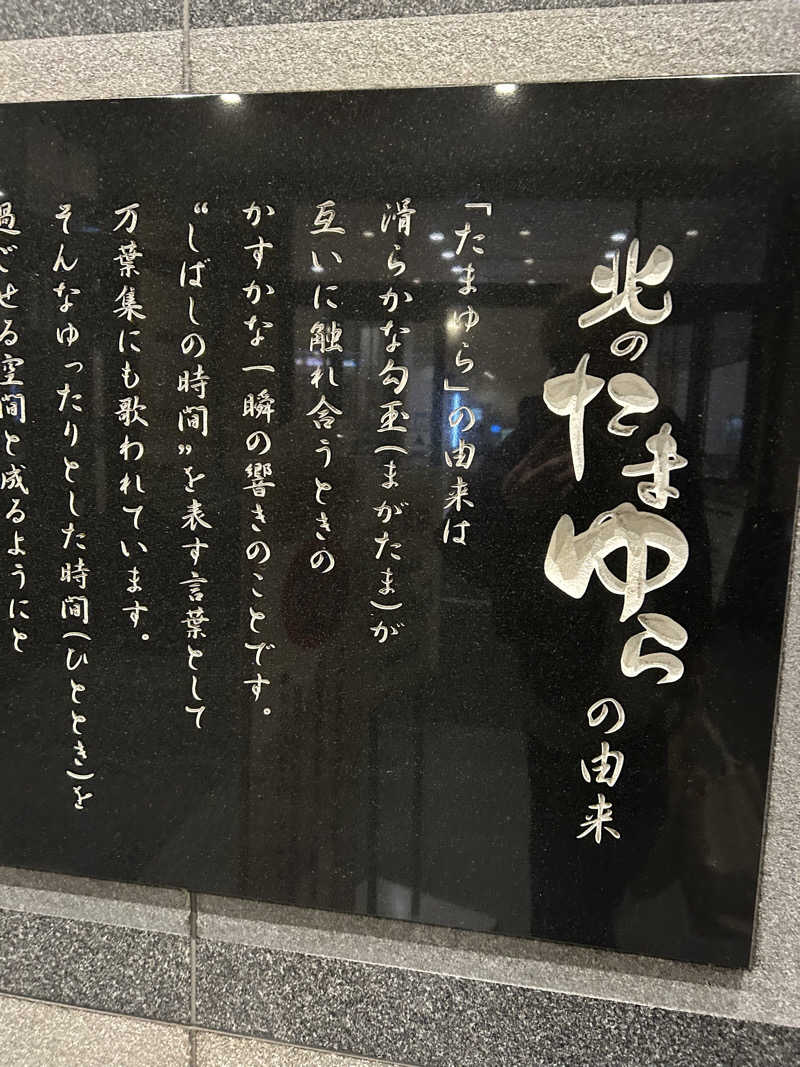 北のたまゆらの由来
「たまゆら」の由来は
滑らかな勾玉(まがたま)が
互いに触れ合うときの
かすかな一瞬の響きのことです。
“しばしの時間”を表す言葉として
万葉集にも歌われています。
そんなゆったりとした時間(ひととき)を
過ごせる空間と成るようにと